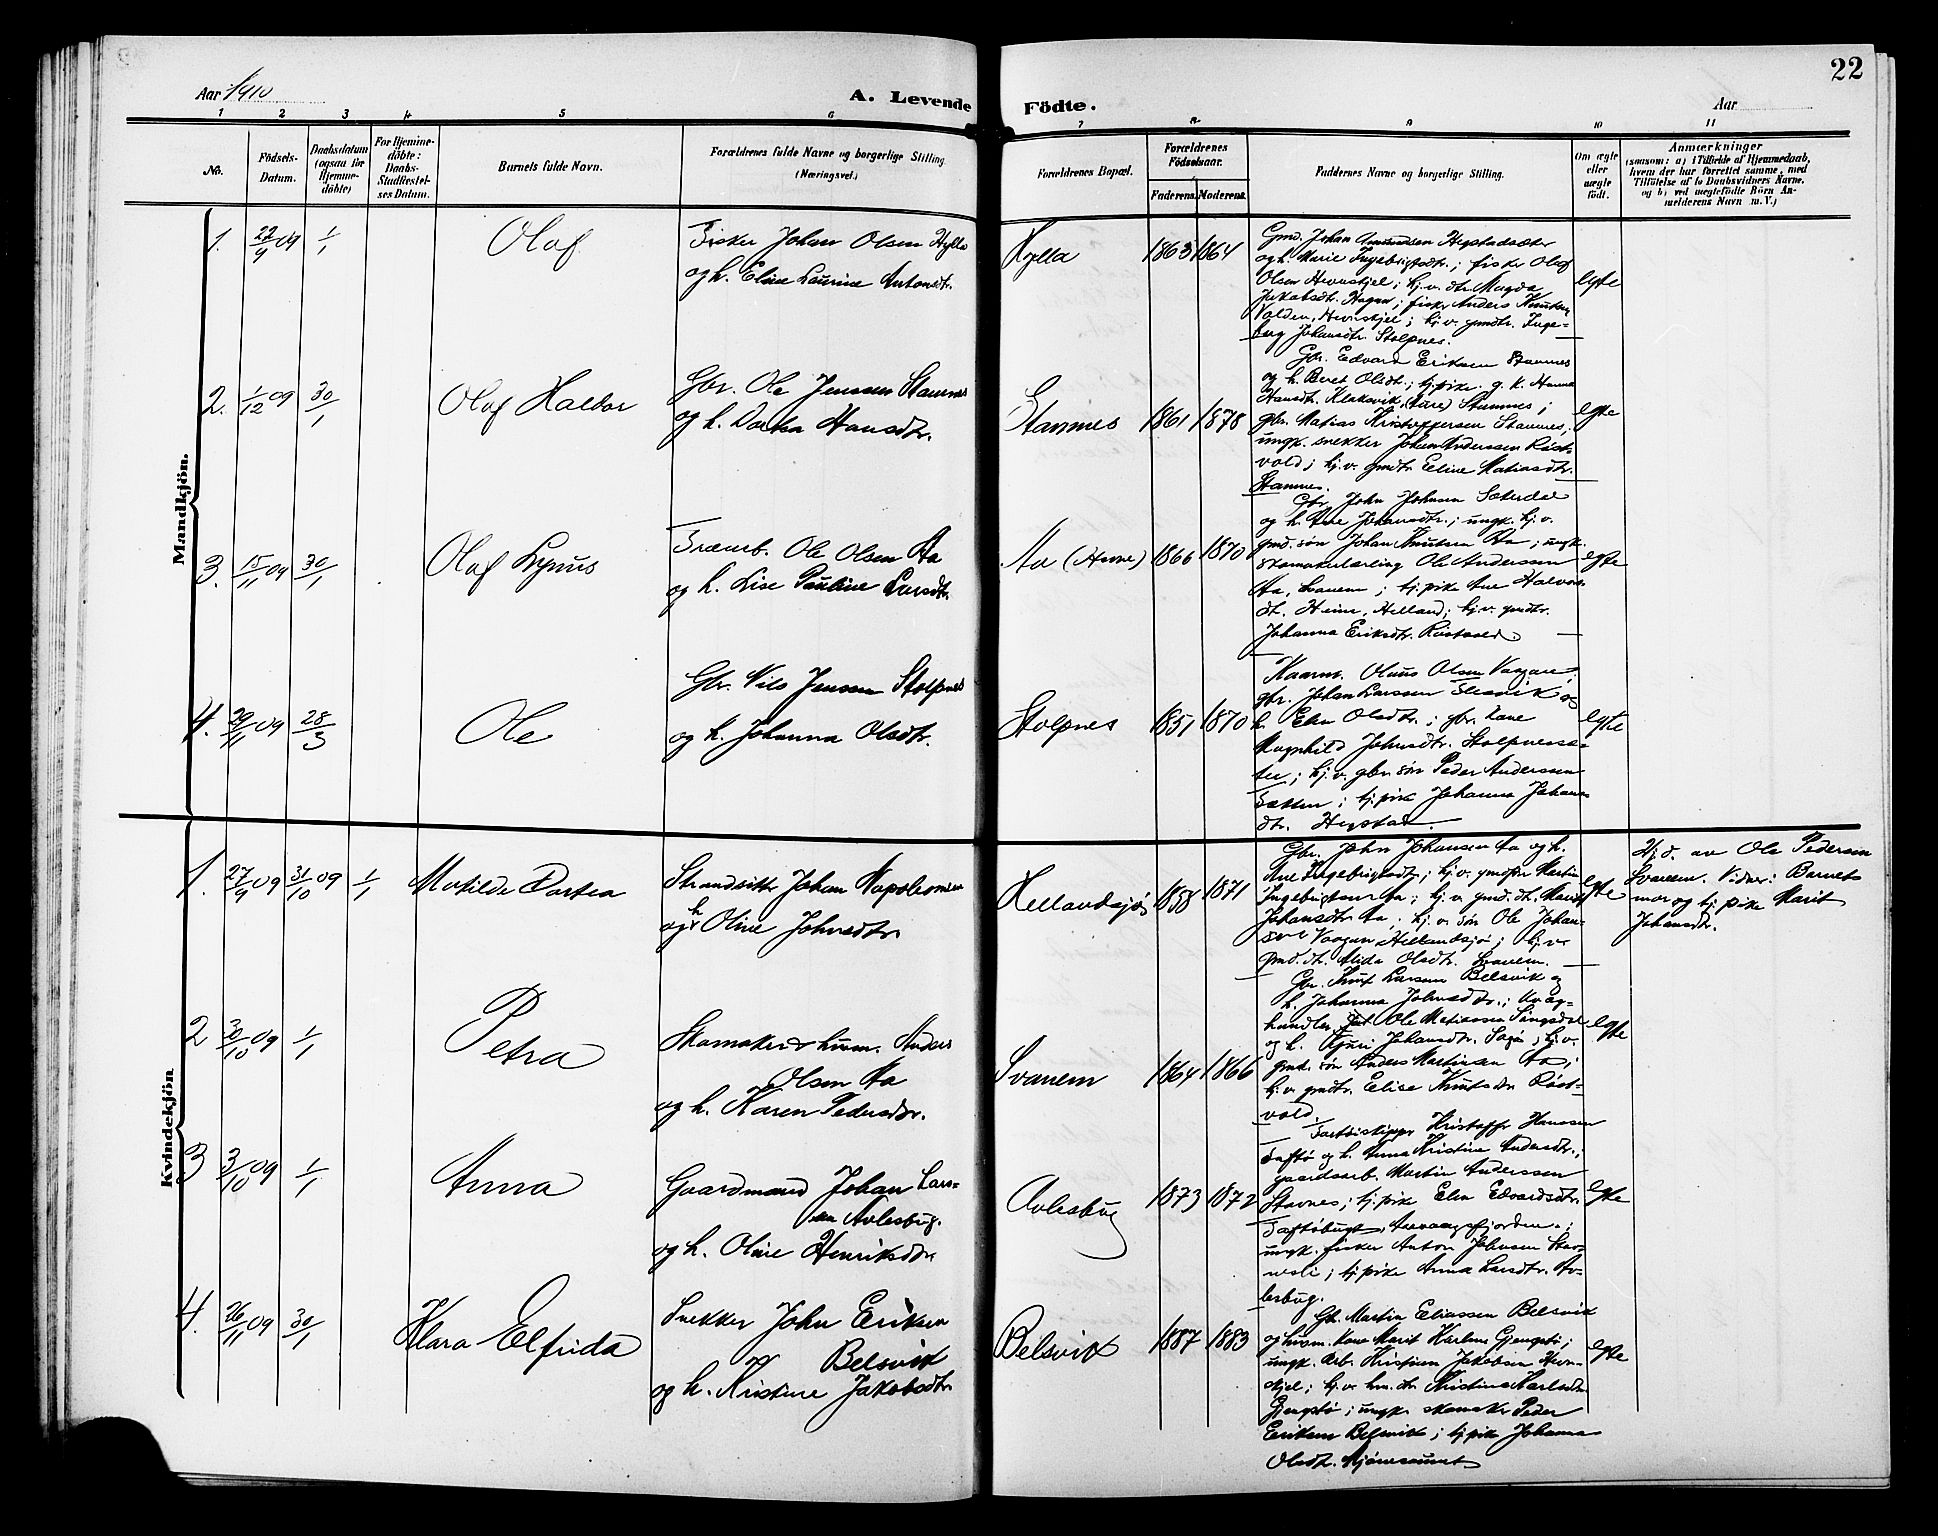 22
Aar 1910
A. Levende Födte.
Aar
1 2 3 4 5 6 7 8 9 10 11
No.
Födsels-Datum.
Daabsdatum (ogsaa for Hjemmedöbte)
For Hjemmedöbte: Daabs-Stadfæstelses Datum.
Barnets fulde Navn.
Forældrenes fulde Navne og borgerlige Stilling. (Næringsvei.)
Forældrenes Bopæl.
Forældrenes Födselsaar.
Faderens.
Moderens.
Faddernes Navne og borgerlige Stilling.
Om ægte eller uægte födt.
Anmærkninger
(saasom: a) i Tilfælde af Hjemmedaab, hvem der har forrettet samme, med Tilföielse af to Daabsvidners Navne, og b) ved uægtefödte Börn Anmelderens Navn m. V.)
Mandkjön.
1. 22/9 09 1/1 Olaf
Fisker Johan Olsen Hylla
og h. Eline Laurine Antonsdtr.
Hylla 1863 1864
Gmd. Johan Amundsen Hegstadsæter
og h. Marie Ingebrigtsdtr.; fisker Olaf
Olsen Hevnskjel; hj.v. dtr. Magda
Jakobsdtr. Hagen; fisker Anders Knutsen
Volden, Hevnskjel; hj.v. gmdtr. Inge-
borg Johansdtr. Stolpnes.
egte
2. 1/12 09 30/1 Olaf Haldor
Gbr. Ole Jenssen Stamnes
og h. Dortea Hansdtr.
Stamnes 1861 1878
Gbr. Edvard Eriksen Stamnes
og h. Beret Olsdtr.; tj.pike g. k. Hanna
Hansdtr. Klaksvik, Stamnes;
gbr. Matias Kristoffersen Stamnes;
ungk. snekker Johan Anderssen Röst-
vold; hj.v. gmdtr. Eline Matiasdtr.
Stamnes.
egte
3. 15/11 09 30/1 Olaf Lynus
Træarb. Ole Olsen Aa
og h. Lise Pauline Larsdtr.
Aa (Hevne) 1866 1870
Gbr. John Johnsen Sæterdal
og h. Ane Johansdtr.; ungk. hj.v.
gmd. søn Johan Knutsen Aa; ungk.
skomakerlærling Ole Anderssen
Aa, Svanem; tj.pike Ane Halvors-
dtr. Heim, Helland; hj.v. gmdtr.
Johanna Eriksdtr. Röstvold.
egte
4. 29/11 09 28/3 Ole
Gbr. Nils Jenssen Stolpnes
og h. Johanna Olsdtr.
Stolpnes 1851 1870
Kaarm. Olaus Olsen Vaagan;
gbr. Johan Larssen Slesvik og
h. Elen Olsdtr.; gbr. kone
Magnhild Johnsdtr. Stolpnessæ-
ter; hj.v. gbr. søn Peder Anderssen
; tj.pike Johanna Johans-
dtr. Hegstad.
egte
Kvindekjön
1. 27/9 09 31/10 09 1/1 Matilde Dortea
Strandsitter Johan Napoleonsen
og h. Oline Johnsdtr.
Hellandsjø 1858 1871
Gbr. John Johansen Aa og h.
Ane Ingebrigtsdtr.; hj.v. gmdsøn Martin
Ingebrigtsen Aa; hj.v. gmd. dt. Marit
Johansdtr. Aa; hj.v. søn Ole Johan-
sen Vaagan, Hellandsjø; hj.v.
gmd. dt. Alida Olsdtr. Svanem.
egte
Hj.d. av Ole Pedersen
Svanem. Vidner: Barnets
mor og tj.pike Marit
Johansdtr.
2 30/10 09 1/1 Petra
Skomaker & husm. Anders
Olsen Aa
og h. Karen Pedersdtr.
Svanem 1864 1866
Gbr. Knut Larsen Belsvik og
h. Johanna Johnsdtr.; kvæg-
handler Ole Matiassen Singsdal
og h. Guri Johansdtr. ; hj.v.
gmd. søn Anders Martinsen Aa;
hj.v. gmdtr. Elise Knutsdtr. Röst-
vold.
egte
3 3/10 09 1/1 Anna
Gaardmand Johan Lars-
sen Avlesbug.
og h. Oline Henriksdtr.
Avlesbug 1873 1872
Fartøiskipper Kristoffer Hanssen
Taftø og h. Anna Kristine Andersdtr.;
gaardsarb. Martin Anderssen
Stavnes; tj.pike Elen Edvardsdtr.
Taftøbugt, Aurvaagsfjorden;
ungk. fisker Anton Johnsen Stav-
nesli; tj.pike Anna Larsdtr. Av-
lesbug.
egte
4. 26/11 09 30/1 Klara Elfrida
Snekker John Eriksen
Belsvik
og h. Kristine Jakobsdtr.
Belsvik 1887 1883
Gb. Martin Eliassen Belsvik
og husm. kone Marit Karlsen Gjengstø;
ungk. arb. Kristian Jakobsen Hevn-
skjel; hj.v. hm. dtr. Kristina Karlsdtr.
Gjengstø; ungk. skomaker Peder
Eriksen Belsvik; tj.pike Johanna
Olsdtr.
egte